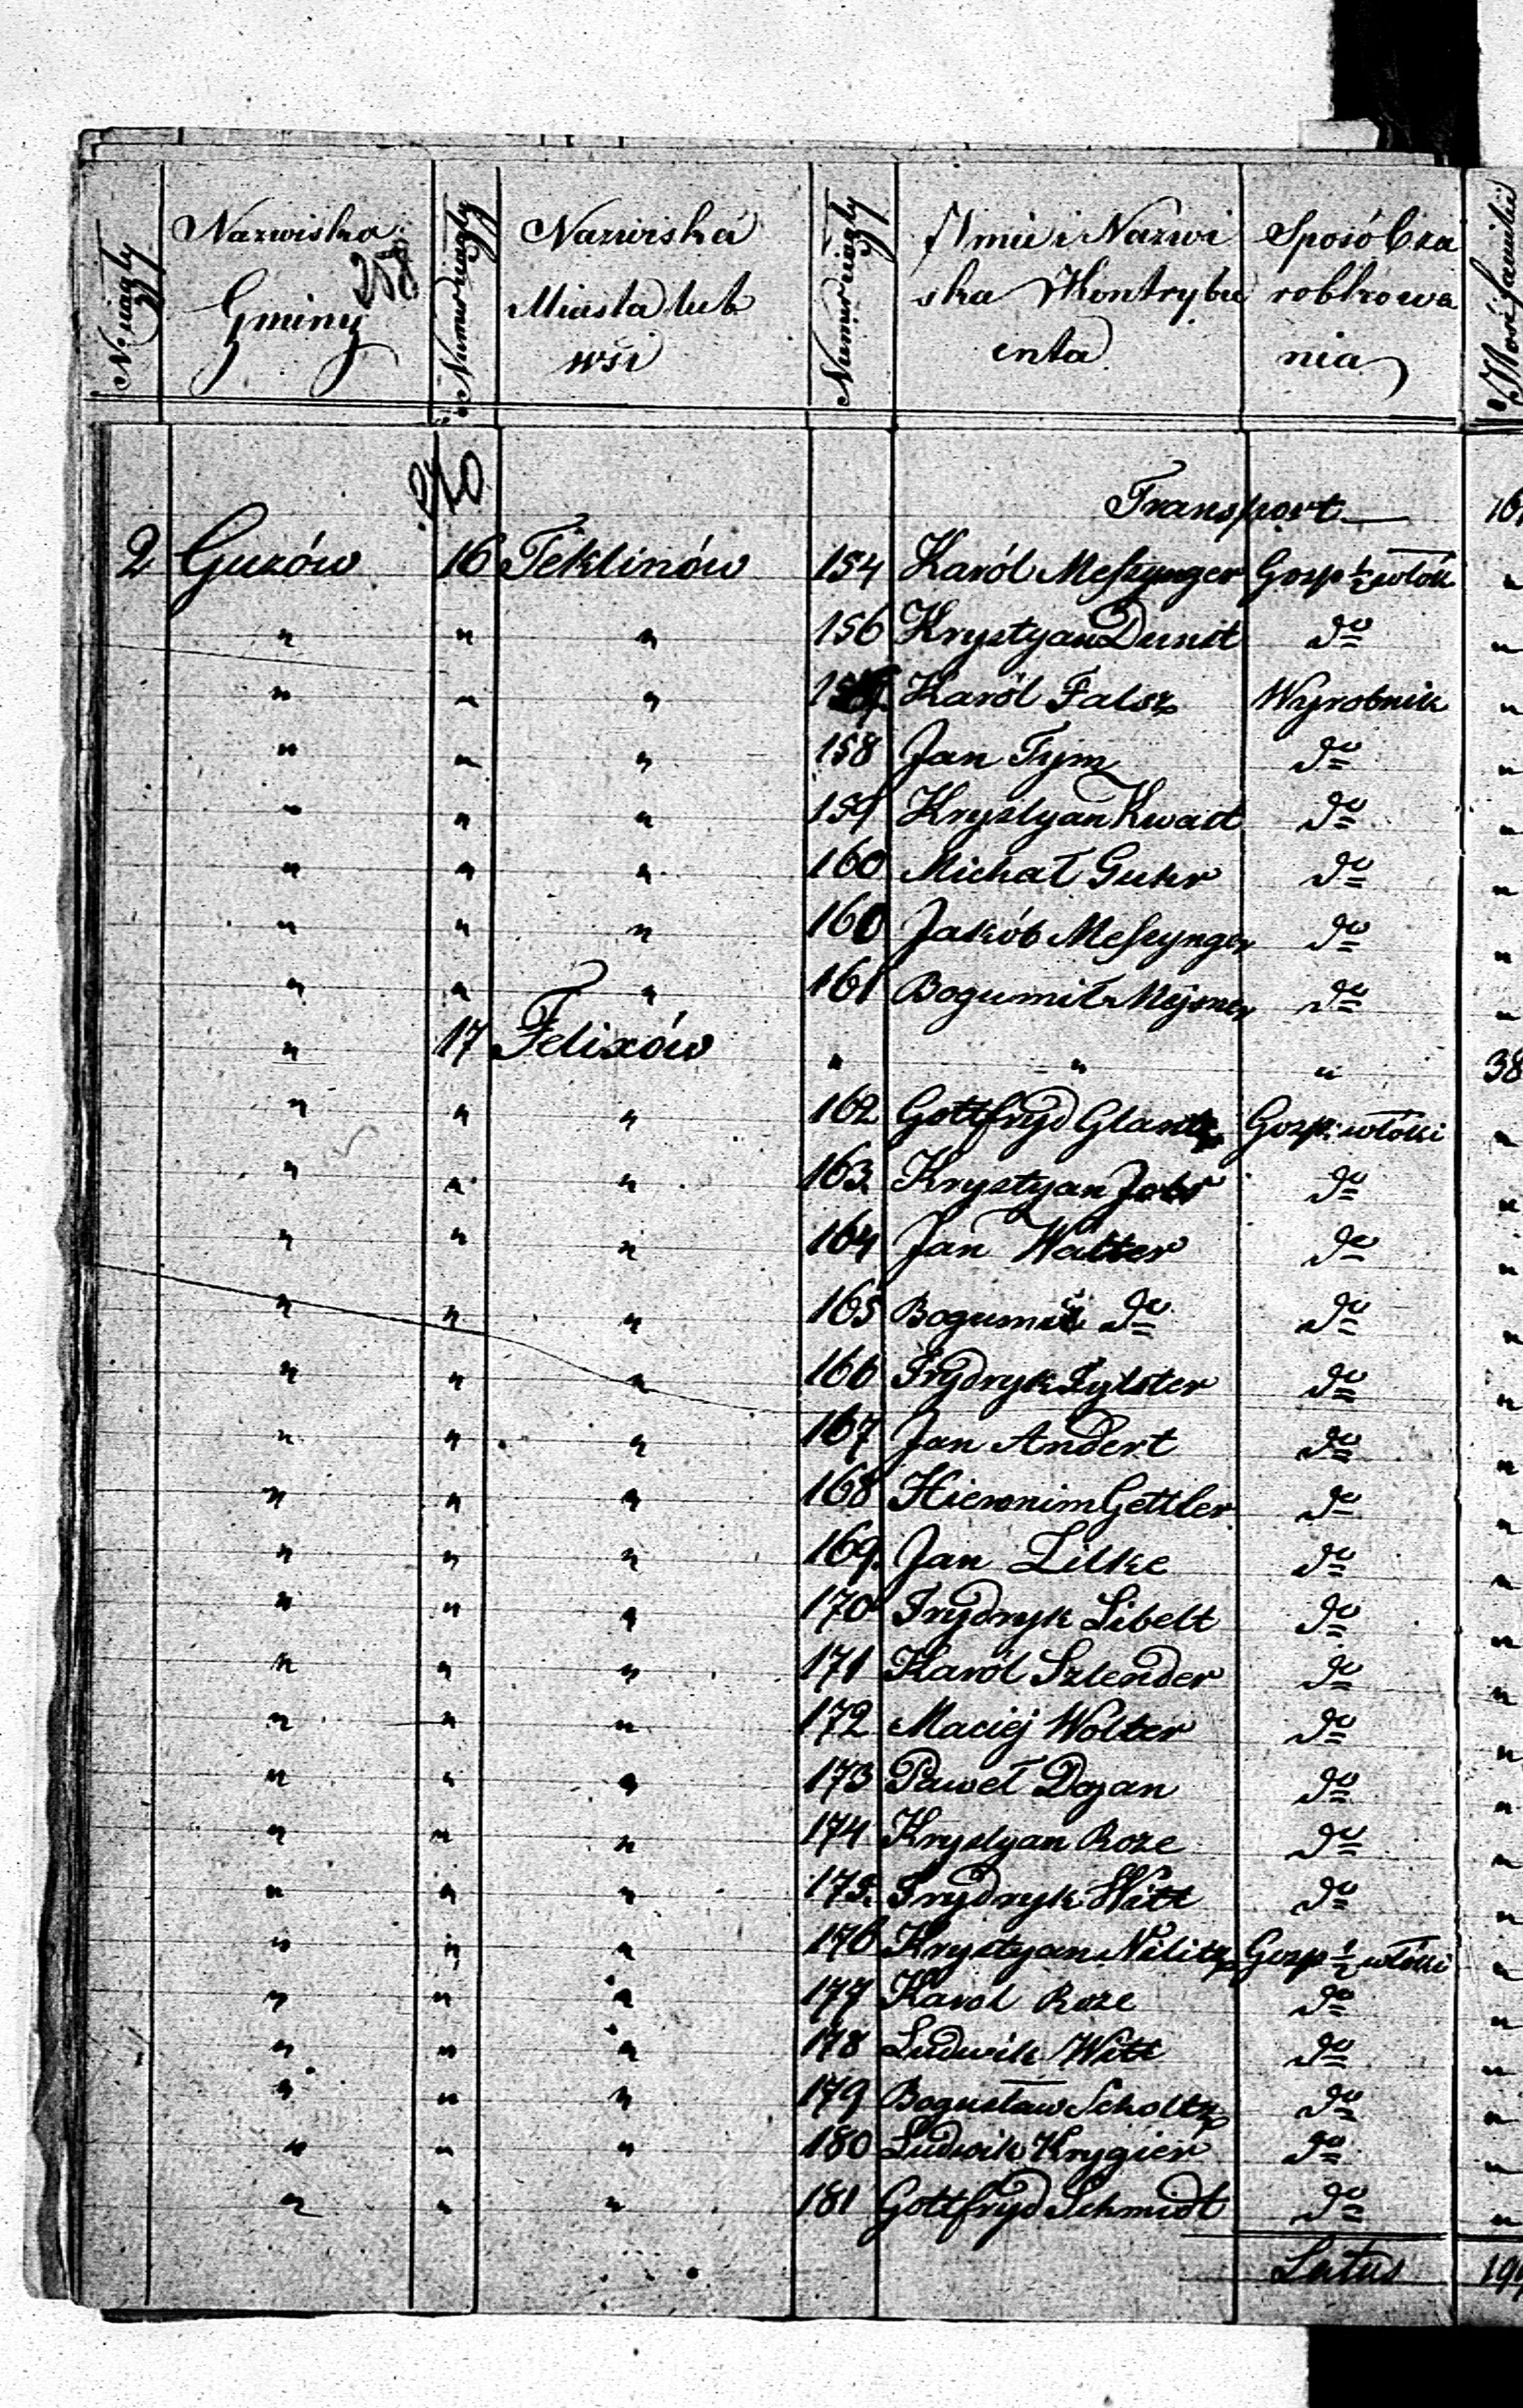 N. ciągły
Nazwiska Gminy
258
Numer ciągły
Nazwiska Miasta lub wsi
Numer ciągły
Imie i Nazwi ska Kontrybu enta
Sposób za robkowa nia
Ilość familii
270
Transport — 16
2 Guzów 16 Teklinów 154 Karól Meszynger Gosp ½ włók "
" " " 156 Krystyan Dunst do "
" " " Karól Falsz Wyrobnik "
" " " 158 Jan Tym do "
" " " 159 Krystyan Kwast do "
" " " 160 Michał Guhr do "
" " " 160 Jakób Meszynger do "
" " " 161 Bogumił Mejsner do "
" 17 Felixów " " " 38
" " " 162 Gottfryd Glantz Gosp: włóki "
" " " 163. Krystyan do "
" " " 164 Jan Walter do "
" " " 165 Bogumił do do "
" " " 166 Frydryk do "
" " " 167 Jan Andert do "
" " " 168 Hieronim Gettler do "
" " " 169. Jan Lilke do "
" " " 170 Frydryk Libelt do "
" " " 171 Karól Szlender do "
" " " 172 Maciéj Wolter do "
" " " 173 Paweł Dozan do "
" " " 174 Krystyan Roze do "
" " " 175. Frydryk Witt do "
" " " 176 Krystyan Nelitz Gosp ½ włóki "
" " " 177 Karol Roze do "
" " " 178 Ludwik Witt do "
" " " 179 Bogusław Scholtz do "
" " " 180 Ludwik Krygier do "
" " " 181 Gottfryd Schmidt do "
Latus 199